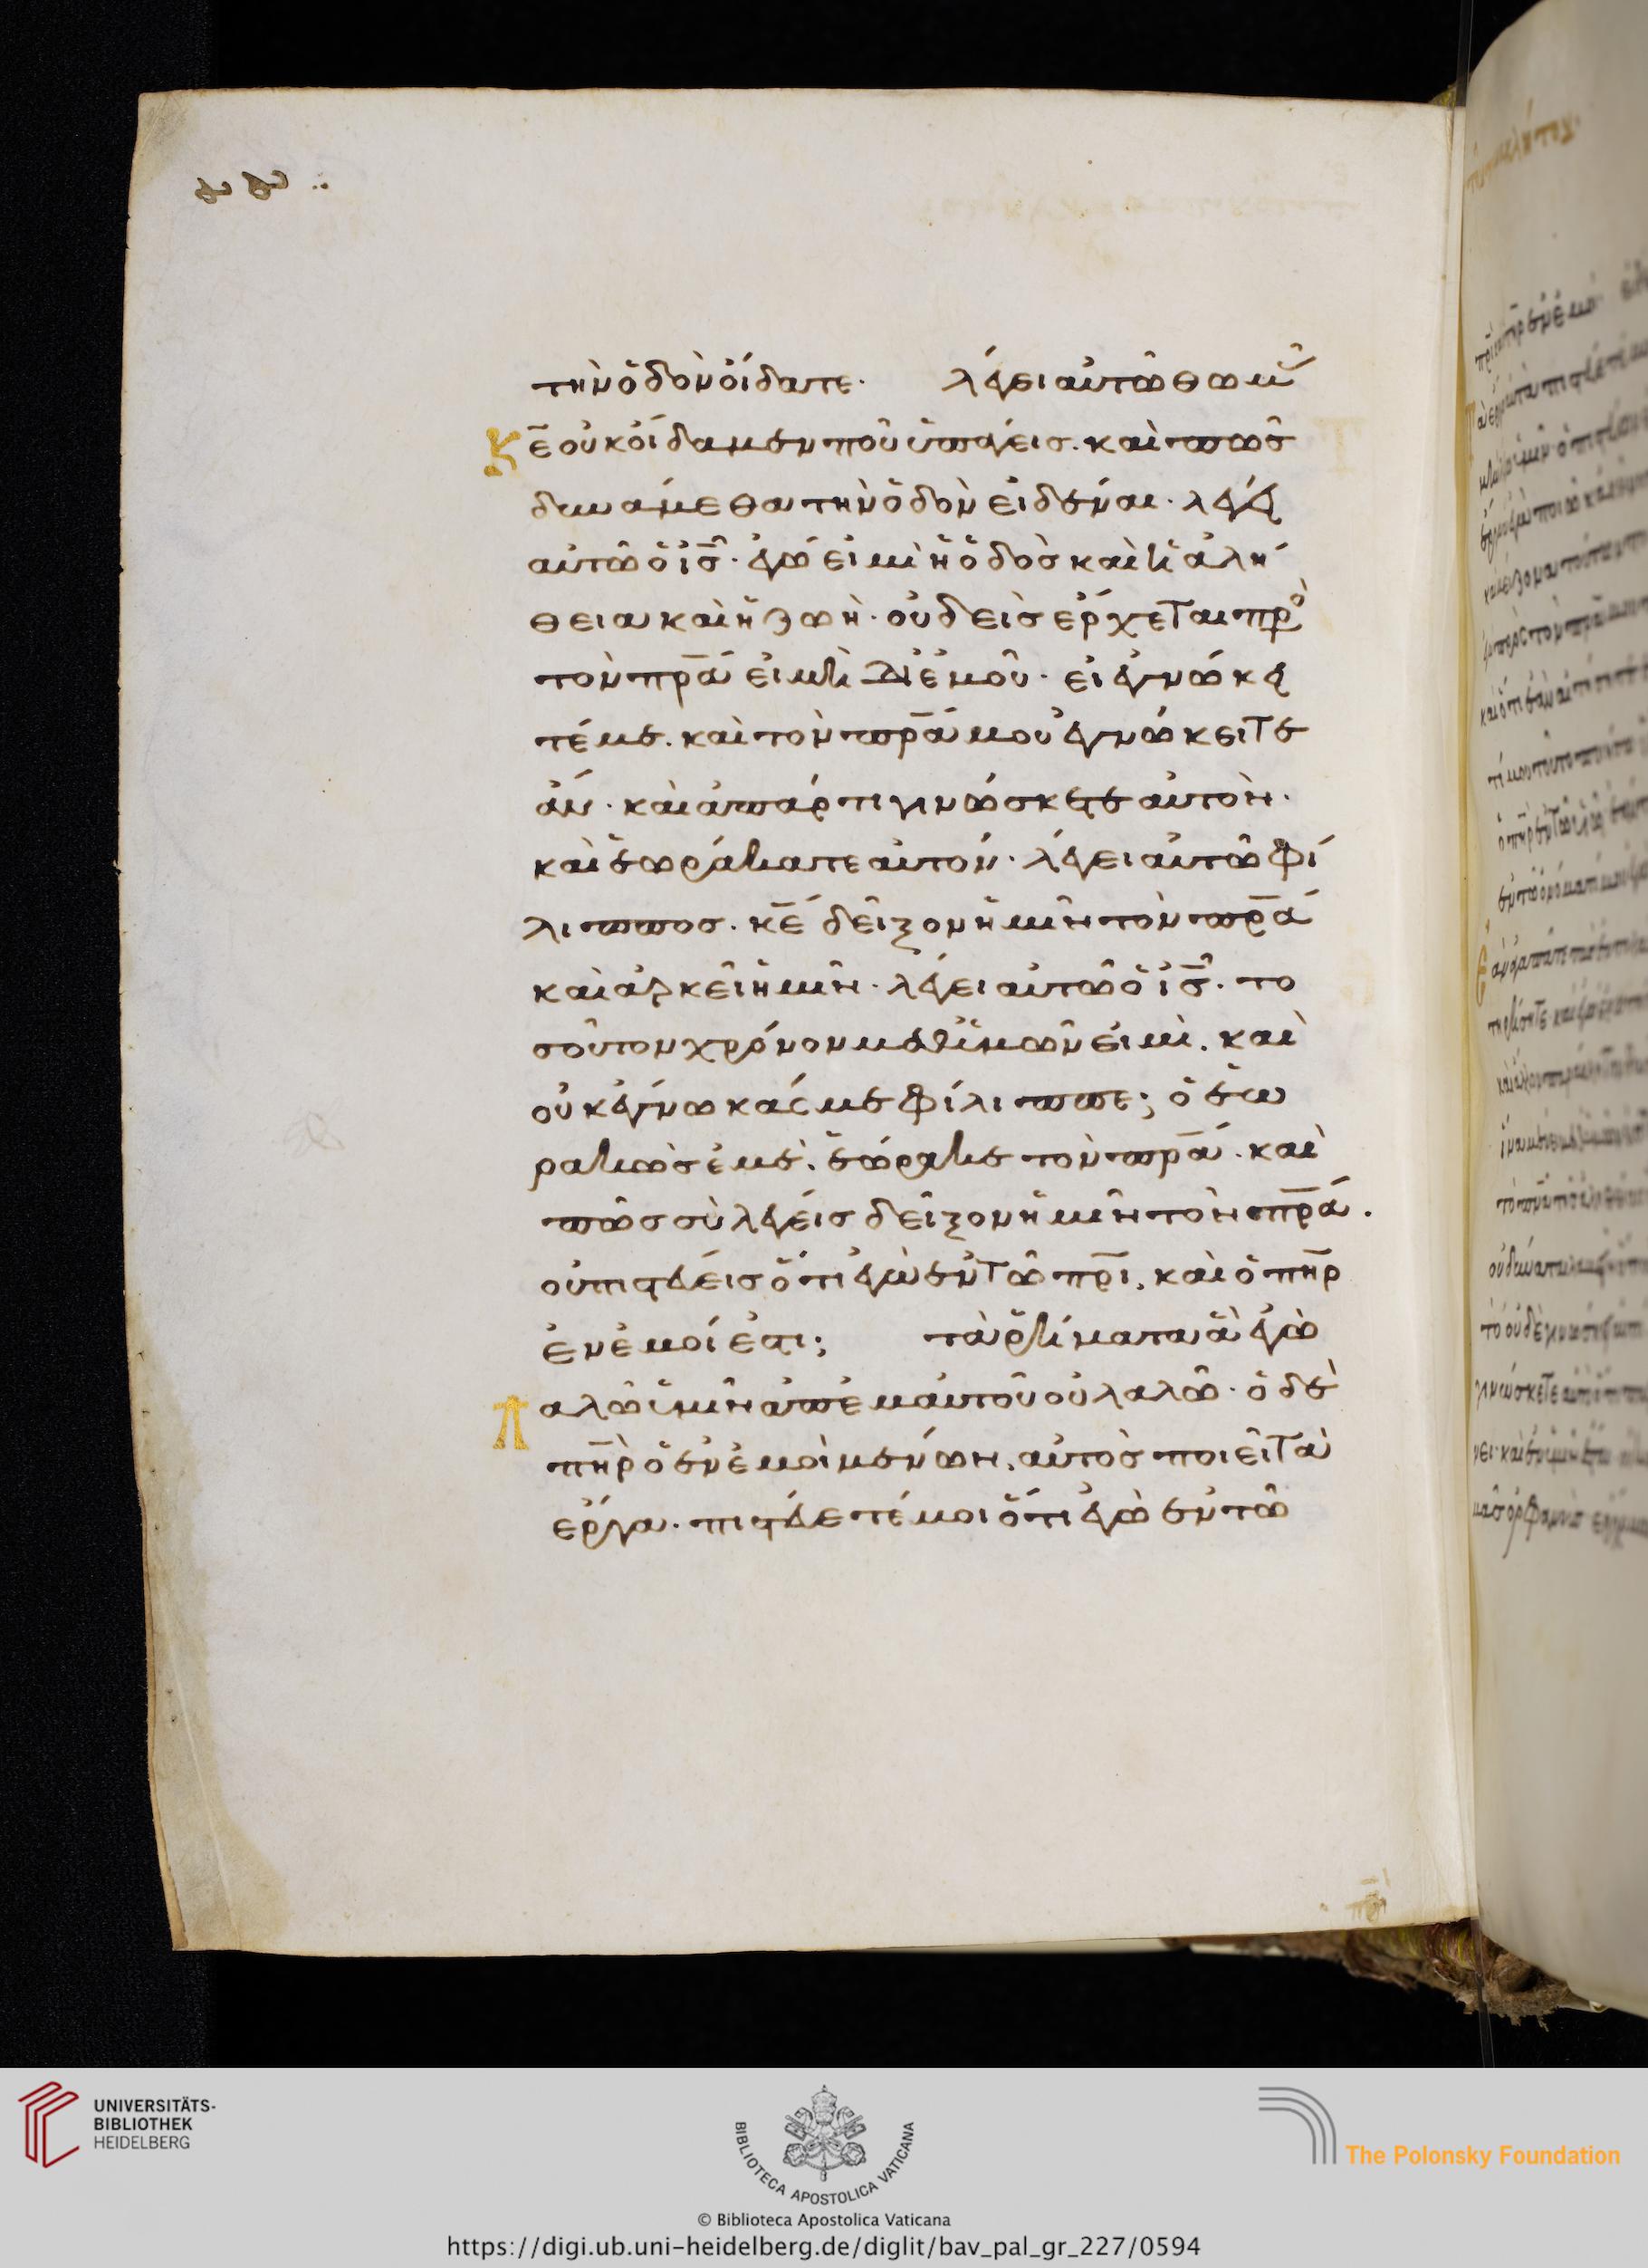 τὴν ὁδὸν οἴδατε· λέγει αὐτῶ θωμᾶ
κ̅ε̅ οὐκ οἴδαμεν ποῦ ὑπάγεις. καὶ πῶς
δυνάμεθα τὴν ὁδὸν εἰδέναι· λέγει
αὐτῶ ὁ ι̅ς̅· ἐγώ εἰμι ἡ ὁδὸς καὶ ἡ ἀλή
θεια καὶ ἡ ζωὴ· οὐδεὶς ἔρχεται πρὸ
τὸν π̅ρ̅α̅ εἰ μὴ δι' ἐμοῦ· εἰ ἐγνώκει
τέ με. καὶ τὸν π̅ρ̅α̅ μου ἐγνώκειτε
ἄν· καὶ ἀπάρτι γινώσκετε αὐτὸν·
καὶ ἑωράκατε αὐτόν· λέγει αὐτῶ φί
λιππος. κ̅ε̅ δεῖξον ἡμῖν τὸν π̅ρ̅α̅
καὶ ἀρκεῖ ἡμῖν· λέγει αὐτῶ ὁ ι̅ς̅. το
σοῦτον χρόνον μεθ' ὑμῶν εἰμὶ. καὶ
οὐκ ἔγνωκάς με φίλιππε; ὁ ἑω
ρακὼς ἐμὲ. ἑώρακε τὸν π̅ρ̅α̅. καὶ
πῶς σὺ λέγεις δεῖξον ἡμῖν τὸν π̅ρ̅α̅.
οὐ πιστεύεις ὅτι ἐγὼ ἐν τῶ π̅ρ̅ι̅. καὶ ὁ π̅η̅ρ̅
ἐν ἐμοί ἐστι; τὰ ῥήματα ἃ ἐγὼ
λαλῶ ὑμῖν ἀπ' ἐμαυτοῦ οὐ λαλῶ· ὁ δὲ
π̅η̅ρ̅ ὁ ἐν ἐμοὶ μένων. αὐτὸς ποιεῖ τὰ
ἔργα. πιστεύετέ μοι ὅτι ἐγὼ ἐν τῶ
UNIVERSITÄTS-
BIBLIOTHEK
HEIDELBERG
BIBLIOTECA APOSTOLICA VATICANA
The Polonsky Foundation
© Biblioteca Apostolica Vaticana
https://digi.ub.uni-heidelberg.de/diglit/bav_pal_gr_227/0594